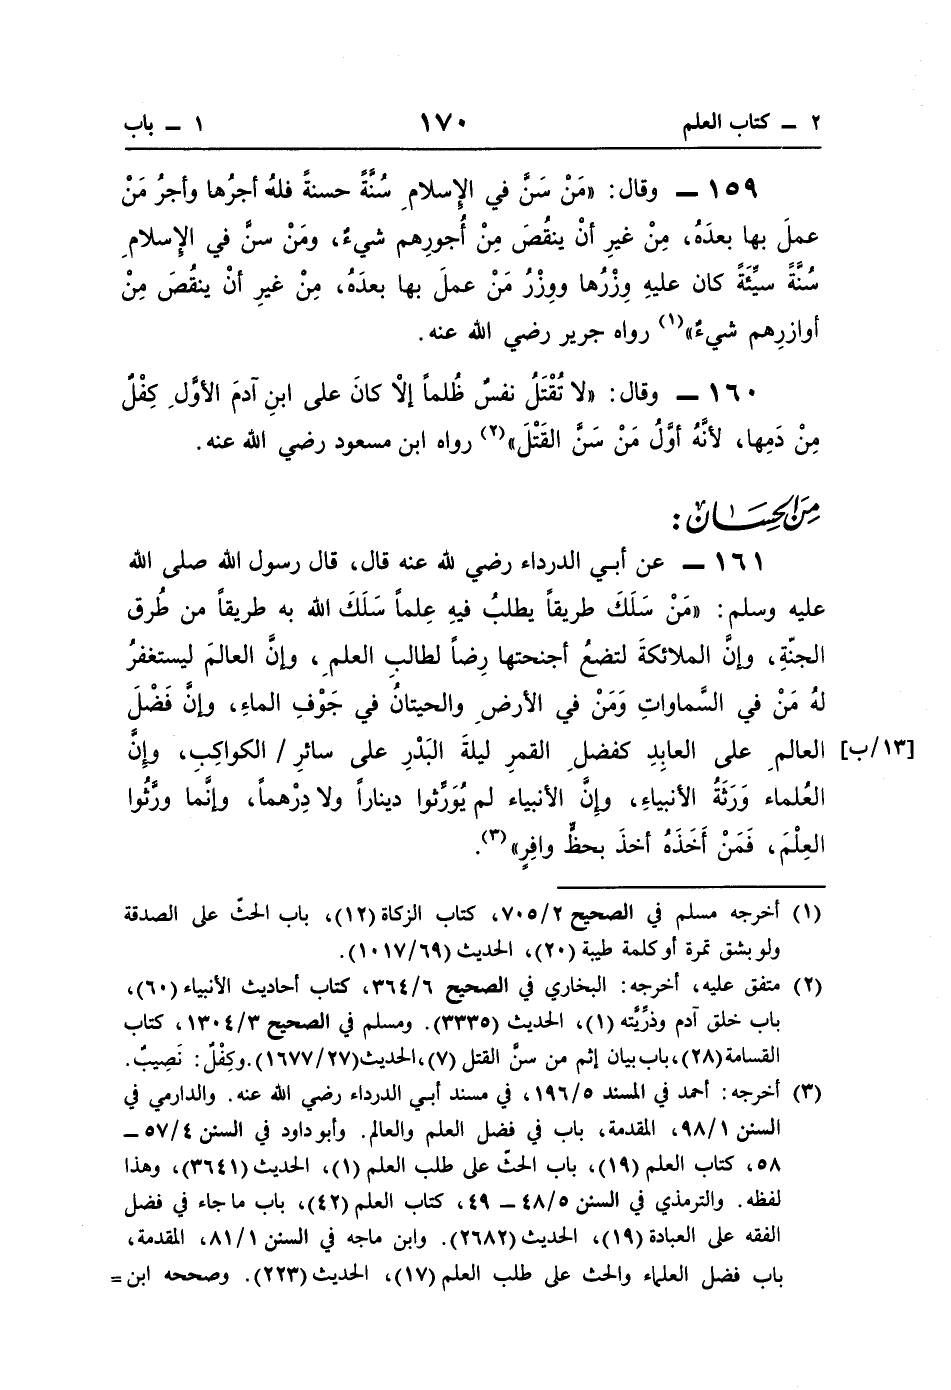 ٢ ــ كتاب العلم ١٧٠ ١ ــ باب
١٥٩ ــ وقال: «مَنْ سَنَّ في الإسلامِ سُنَّةً حسنةً فلهُ أجرُها وأجرُ مَنْ
عملَ بها بعدَهُ، مِنْ غيرِ أنْ ينقُصَ مِنْ أُجورِهم شيءٌ، ومَنْ سنَّ في الإسلامِ
سُنَّةً سيِّئَةً كان عليهِ وِزْرُها ووِزْرُ مَنْ عملَ بها بعدَهُ، مِنْ غيرِ أنْ ينقُصَ مِنْ
أوازرِهم شيءٌ»(١) رواه جرير رضي الله عنه.
١٦٠ ــ وقال: «لا تُقْتَلُ نفسٌ ظُلماً إلاّ كانَ على ابنِ آدمَ الأوَّلِ كِفْلٌ
مِنْ دَمِها، لأنَّهُ أوَّلُ مَنْ سَنَّ القَتْلَ»(٢) رواه ابن مسعود رضي الله عنه.
مِنَ الحِسَان:
١٦١ ــ عن أبي الدرداء رضي لله عنه قال، قال رسول الله صلى الله
عليه وسلم: «مَنْ سَلَكَ طريقاً يطلبُ فيهِ عِلماً سَلَكَ الله به طريقاً من طُرق
الجنّةِ، وإنَّ الملائكةَ لتضعُ أجنحتها رِضاً لطالبِ العلمِ، وإنَّ العالمَ ليستغفرُ
لهُ مَنْ في السَّماواتِ وَمَنْ في الأرضِ والحيتانُ في جَوْفِ الماءِ، وإنَّ فَضْلَ
[١٣/ب] العالمِ على العابِدِ كفضلِ القمرِ ليلةَ البَدْرِ على سائرِ / الكواكِبِ، وإنَّ
العُلماء وَرَثَةُ الأنبياءِ، وإنَّ الأنبياء لم يُوَرِّثوا ديناراً ولا دِرْهماً، وإنَّما ورَّثُوا
العِلْمَ، فَمَنْ أَخَذَهُ أخذَ بحظٍّ وافِرٍ»(٣).
(١) أخرجه مسلم في الصحيح ٧٠٥/٢، كتاب الزكاة (١٢)، باب الحثّ على الصدقة
ولو بشق تمرة أو كلمة طيبة (٢٠)، الحديث (١٠١٧/٦٩).
(٢) متفق عليه، أخرجه: البخاري في الصحيح ٣٦٤/٦، كتاب أحاديث الأنبياء (٦٠)،
باب خلق آدم وذرِّيَّته (١)، الحديث (٣٣٣٥). ومسلم في الصحيح ١٣٠٤/٣، كتاب
القسامة (٢٨)، باب بيان إثم من سنَّ القتل (٧)، الحديث (١٦٧٧/٢٧). وكِفْلٌ: نَصِيبٌ.
(٣) أخرجه: أحمد في المسند ١٩٦/٥، في مسند أبي الدرداء رضي الله عنه. والدارمي في
السنن ٩٨/١، المقدمة، باب في فضل العلم والعالم. وأبو داود في السنن ٥٧/٤ ــ
٥٨، كتاب العلم (١٩)، باب الحثّ على طلب العلم (١)، الحديث (٣٦٤١)، وهذا
لفظه. والترمذي في السنن ٤٨/٥ ــ ٤٩، كتاب العلم (٤٢)، باب ما جاء في فضل
الفقه على العبادة (١٩)، الحديث (٢٦٨٢). وابن ماجه في السنن ٨١/١، المقدمة،
باب فضل العلماء والحث على طلب العلم (١٧)، الحديث (٢٢٣). وصححه ابن =